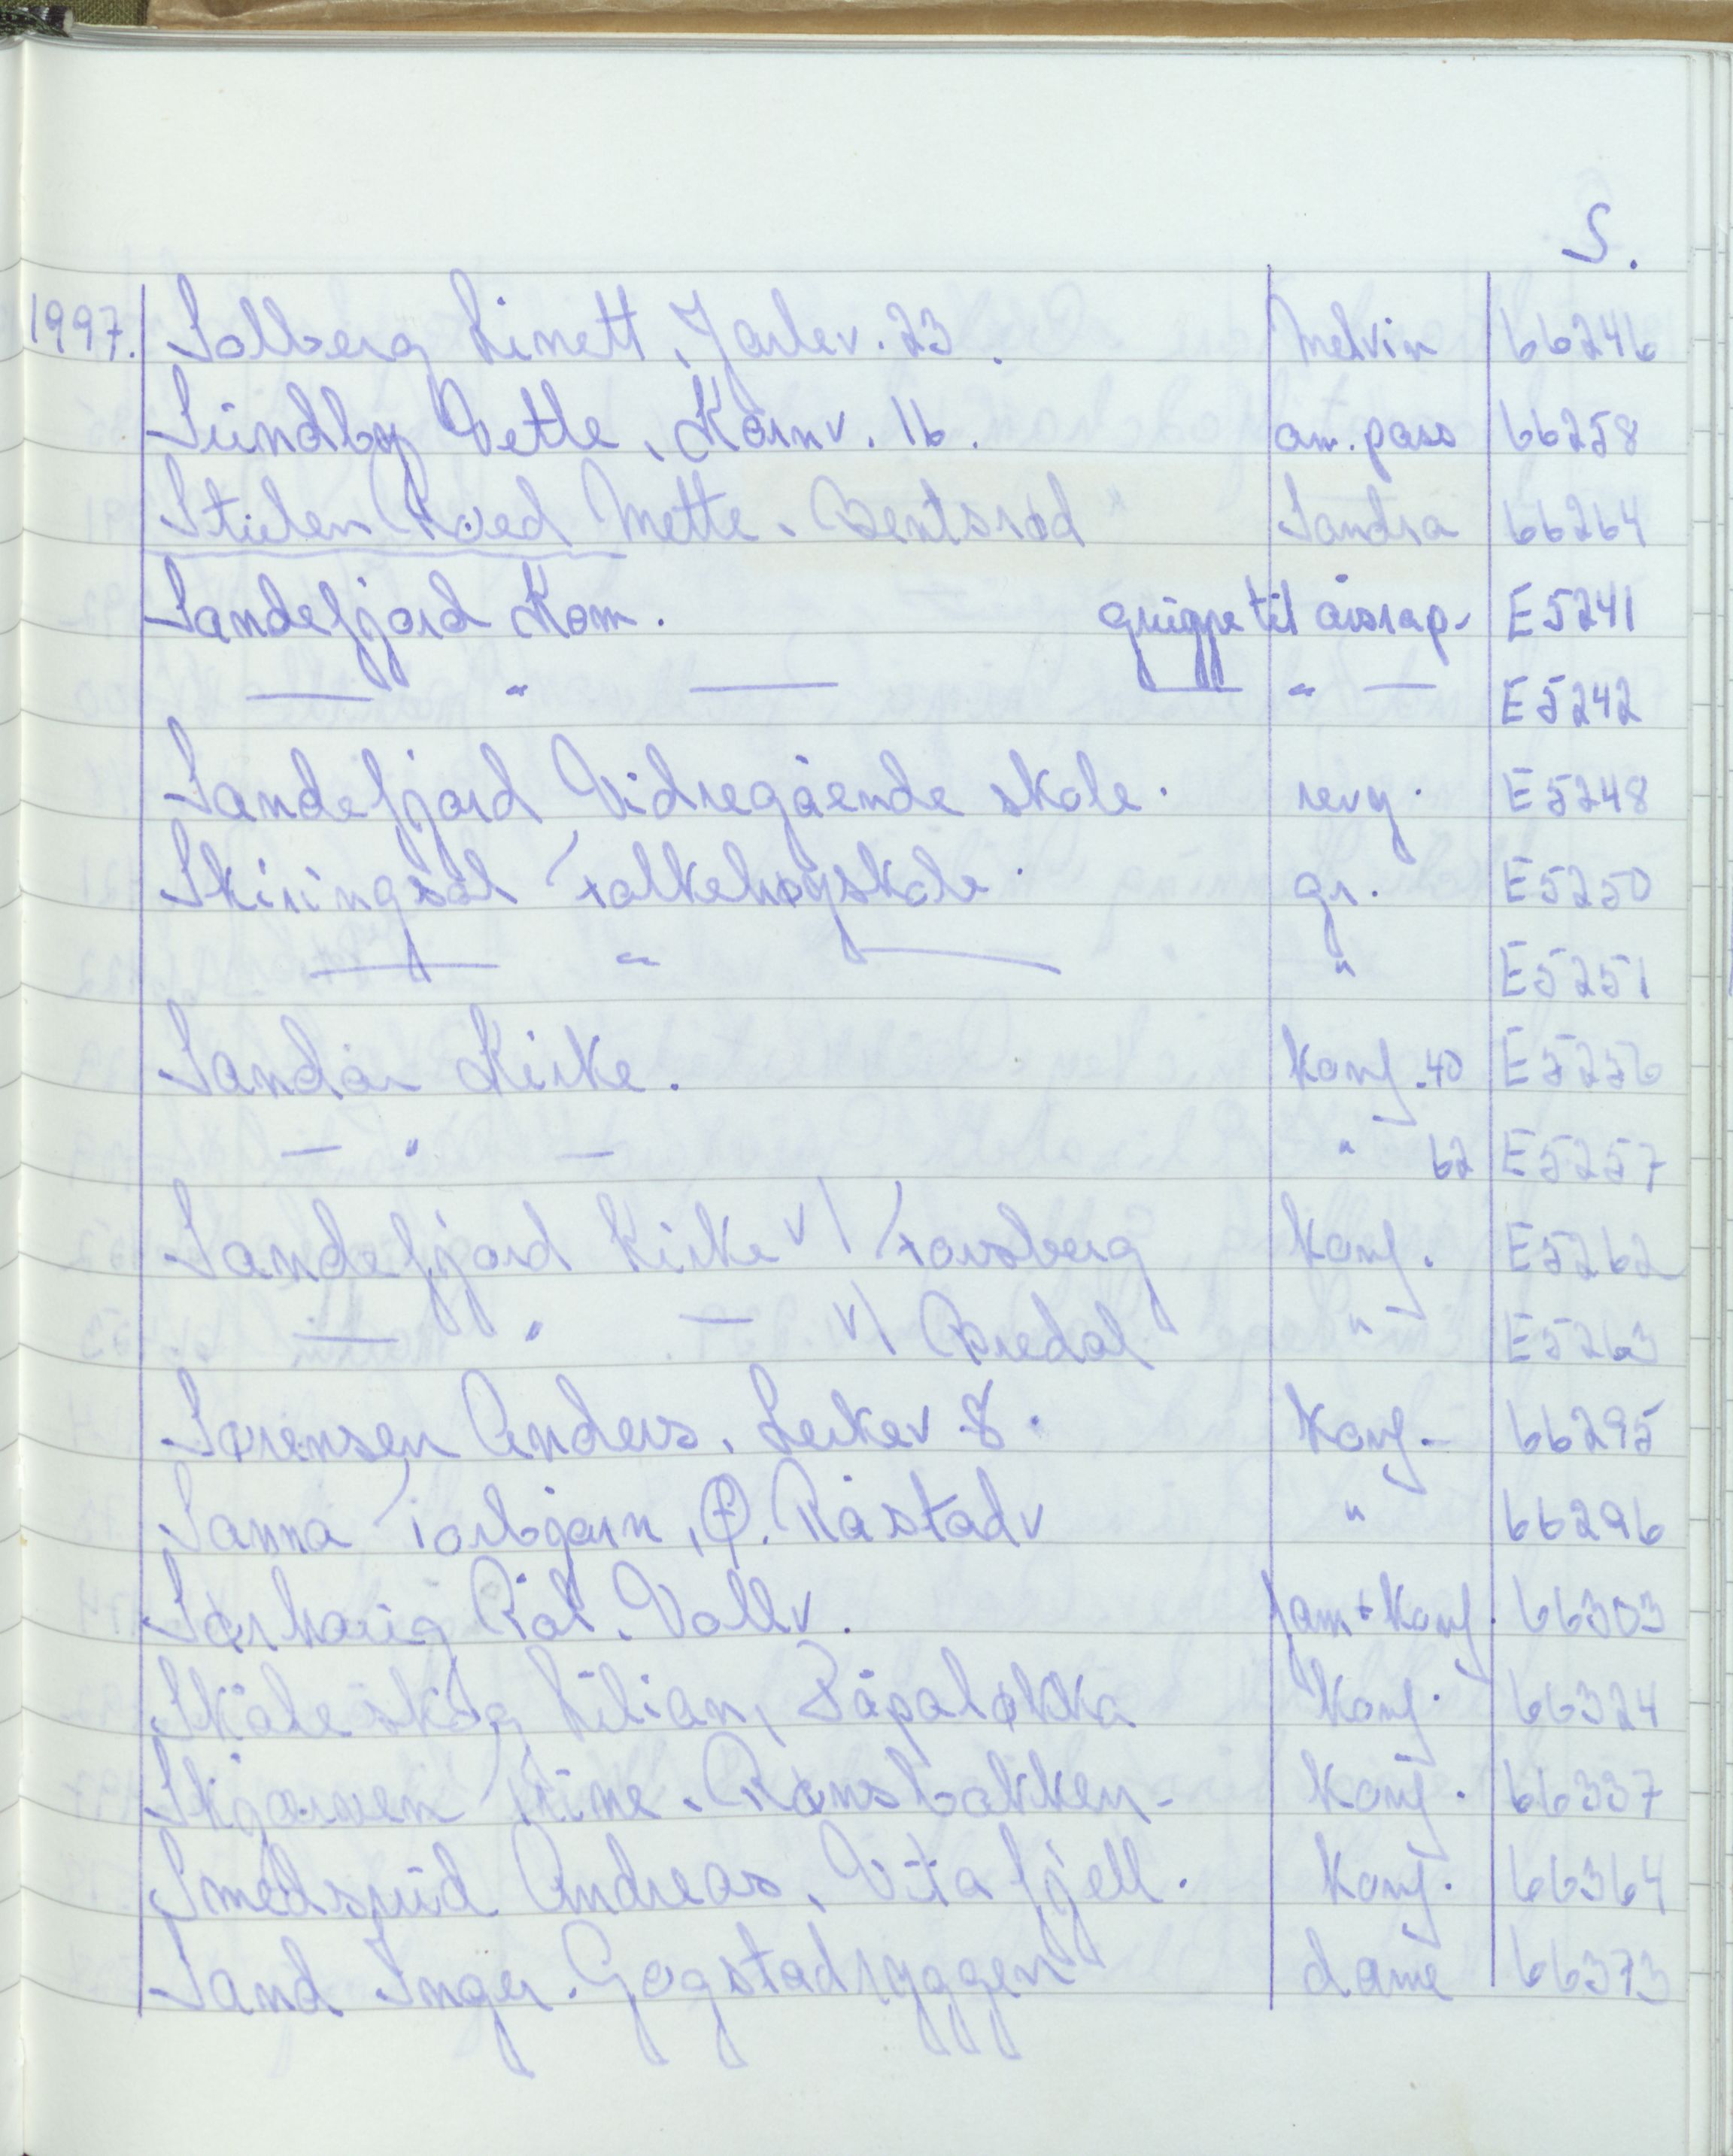 S.
1997. Solberg Linett, Jarlev. 23. Melvin 66246
Sundby Vetle, Kornv. 16. am. pass 66258
Stulen Roed Mette. Bentsrød Sandra 66264
Sandefjord Kom. gruppe til årsrap. E5241
— " — — " — E5242
Sandefjord Vidregående skole. revy. E5248
Skiringsal Folkehøyskole. gr. E5250
— " — " E5251
Sandar Kirke. Konf. 40 E5256
— " — " 62 E5257
Sandefjord Kirke v/ Forsberg Konf. E5262
— " — v/ Bredal " E5263
Sørensen Anders. Leikev 8. Konf. 66295
Sanna Torbjørn, Ø. Råstadv " 66296
Sørhaug Pål. Vollv. fam + Konf. 66303
Skåleskog Kilian, Påpaløkka Konf. 66324
Skjærven Trine. Rønsbakken. Konf. 66337
Smedsrud Andreas, Vita fjell. Konf. 66364
Sand Inger. Gogstadryggen dame 66373